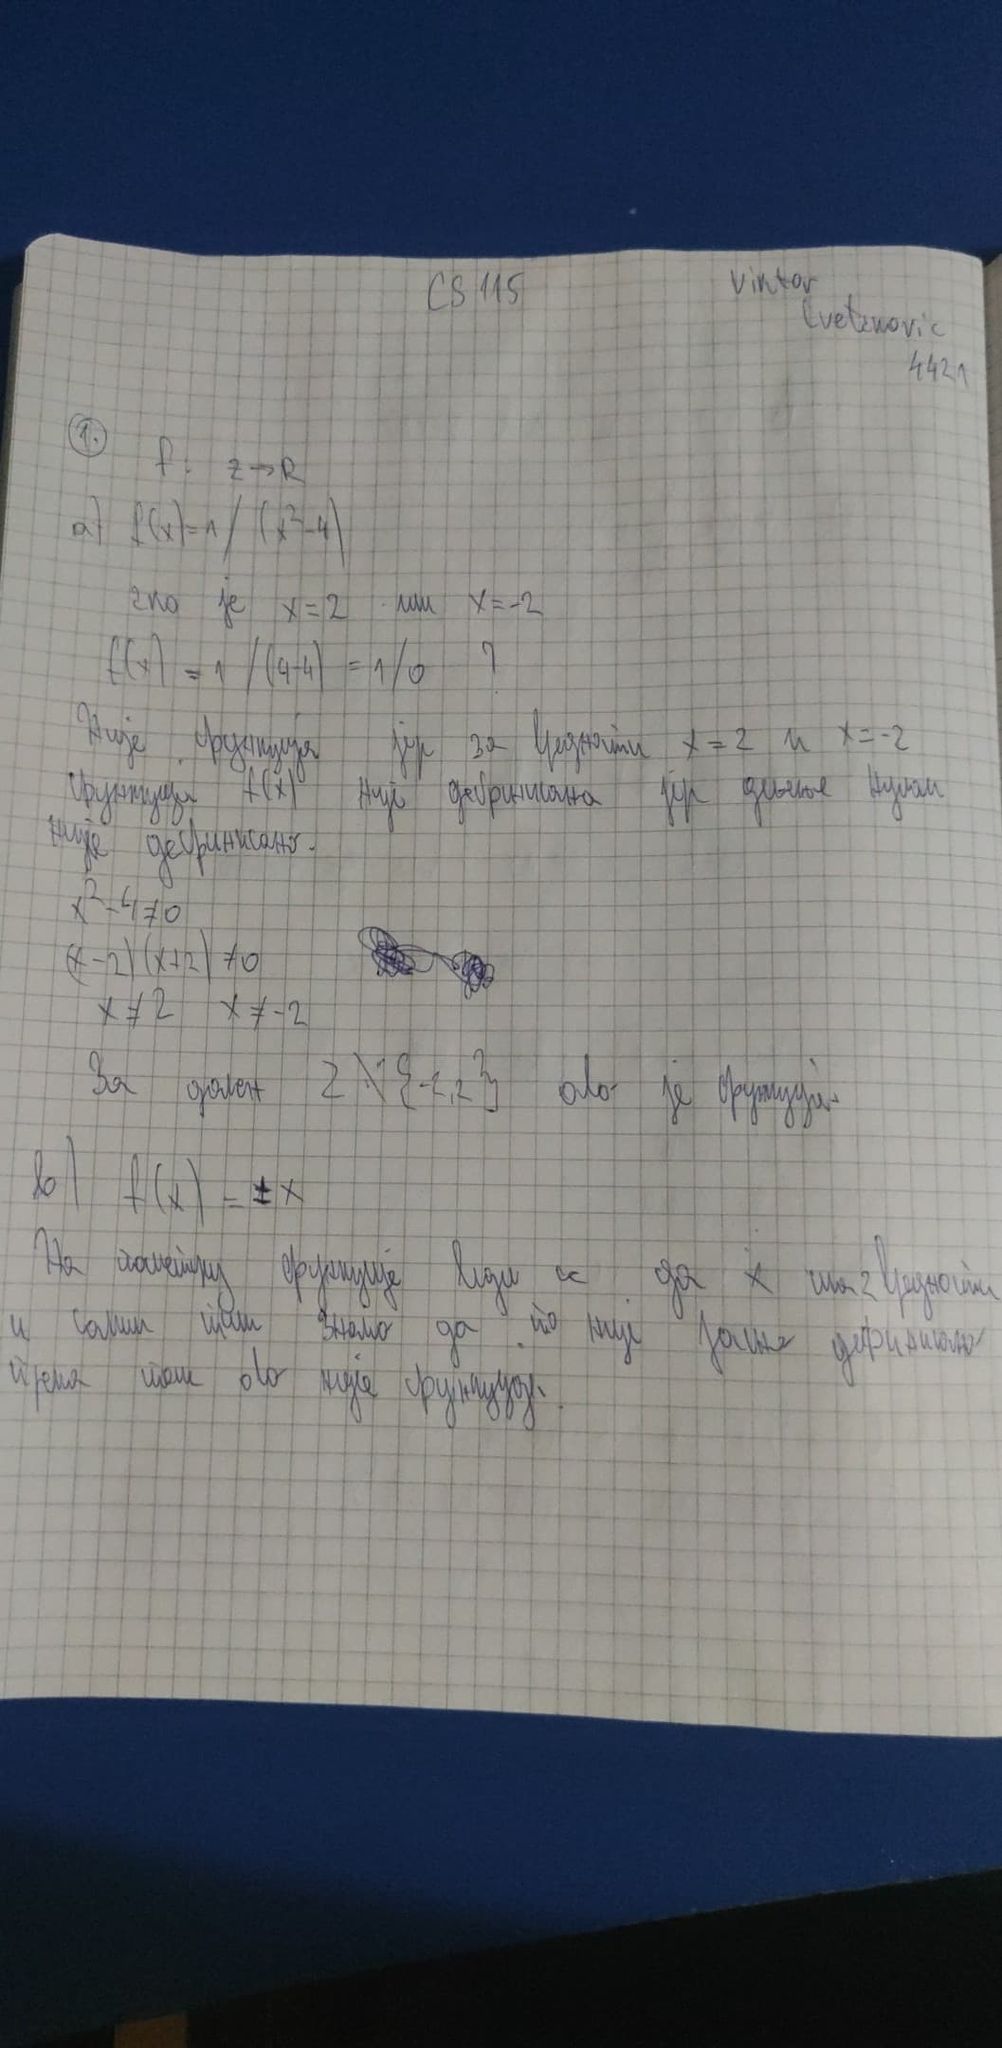 CS 115
Viktor
Cvetanovic
4421
1.
f: Z→R
a) f(x)=1/(x²-4)
ако је x=2 или x=-2
f(x) = 1/(4-4) = 1/0 ?
Није функција јер за вредности x=2 и x=-2
функција f(x) није дефинисана јер дељење нулом
није дефинисано.
x²-4≠0
(x-2)(x+2)≠0
x≠2 x≠-2
За домен Z\{-2,2} ово је функција.
b) f(x) = ±x
На функције види се да x има 2 вредности
и самим тим знамо да није јасно дефинисано
према томе ово није функција.